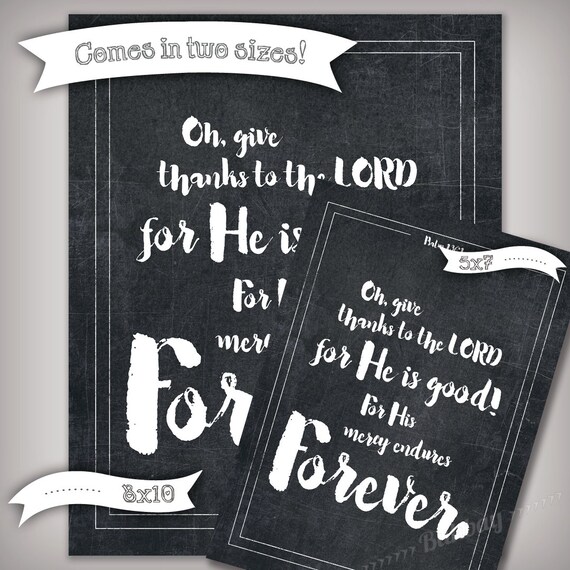 Comes in two sizes!
Oh, give
thanks to the LORD
for He is
For
mer
For
8x10
5x7
Oh, give
thanks to the LORD
for He is good!
For His
mercy endures
Forever.